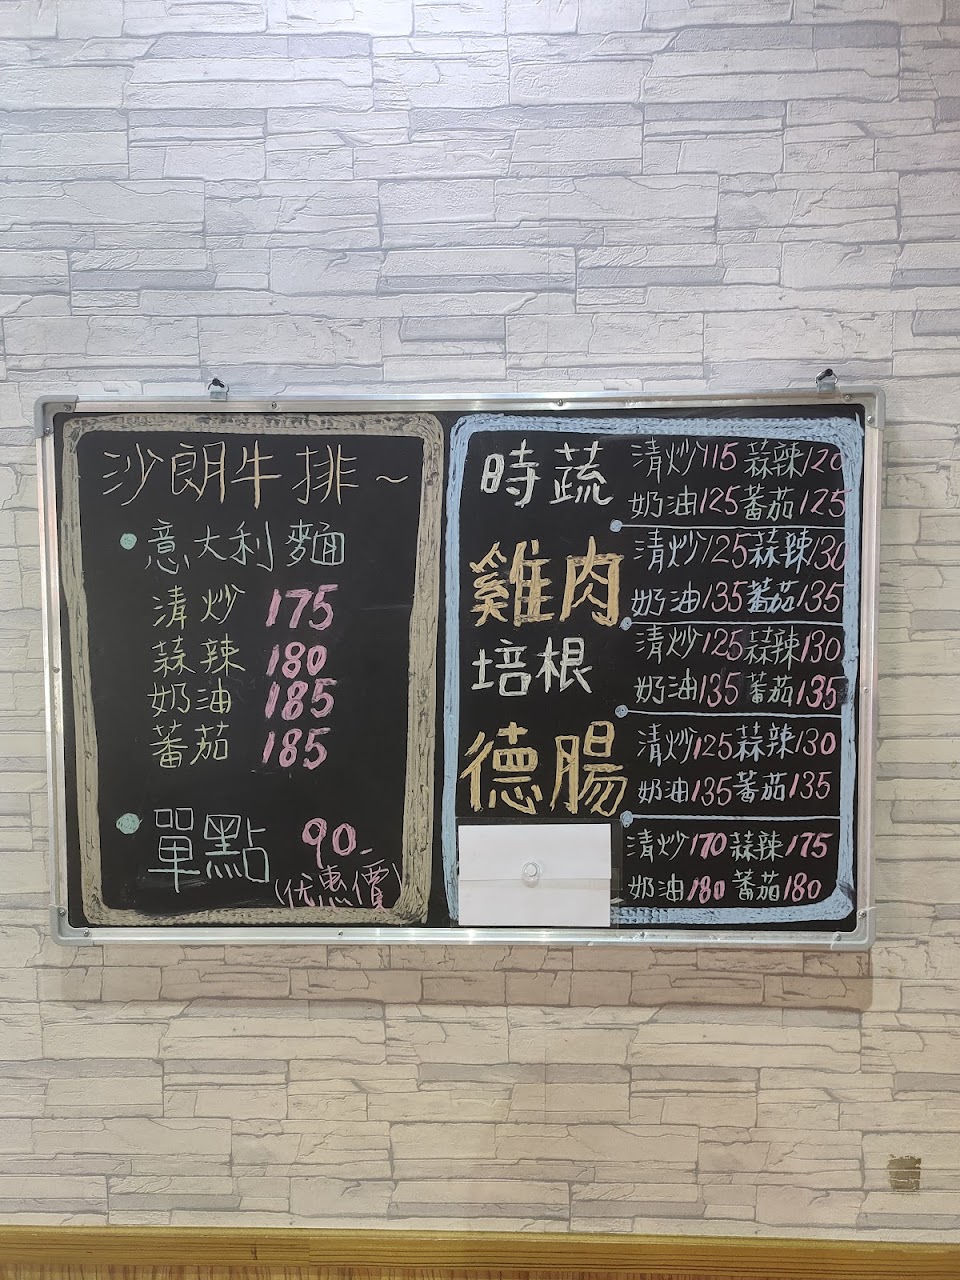 沙朗牛排~
意大利麵
清炒 175
蒜辣 180
奶油 185
蕃茄 185
單點 90-
(优惠價)
時蔬
清炒115 蒜辣120
奶油125 蕃茄125
雞肉
清炒125 蒜辣130
奶油135 蕃茄135
培根
清炒125 蒜辣130
奶油135 蕃茄135
德腸
清炒125 蒜辣130
奶油135 蕃茄135
清炒170 蒜辣175
奶油180 蕃茄180